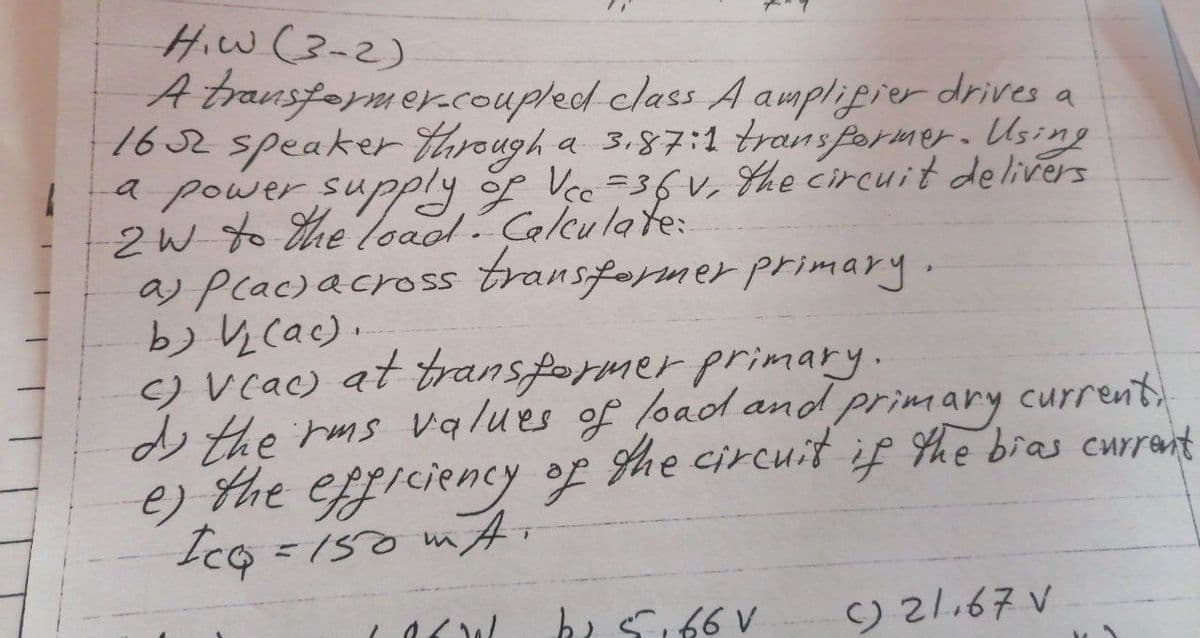 H.W (3-2)
A transformer-coupled class A amplifier drives a
16Ω speaker through a 3.87:1 transformer. Using
a power supply of Vcc = 36 V, the circuit delivers
2W to the load. Calculate:
a) P(ac) across transformer primary.
b) VL(ac).
c) V(ac) at transformer primary.
d) the rms values of load and primary current.
e) the efficiency of the circuit if the bias current
ICQ = 150 mA.
b) 5.66 V c) 21.67 V